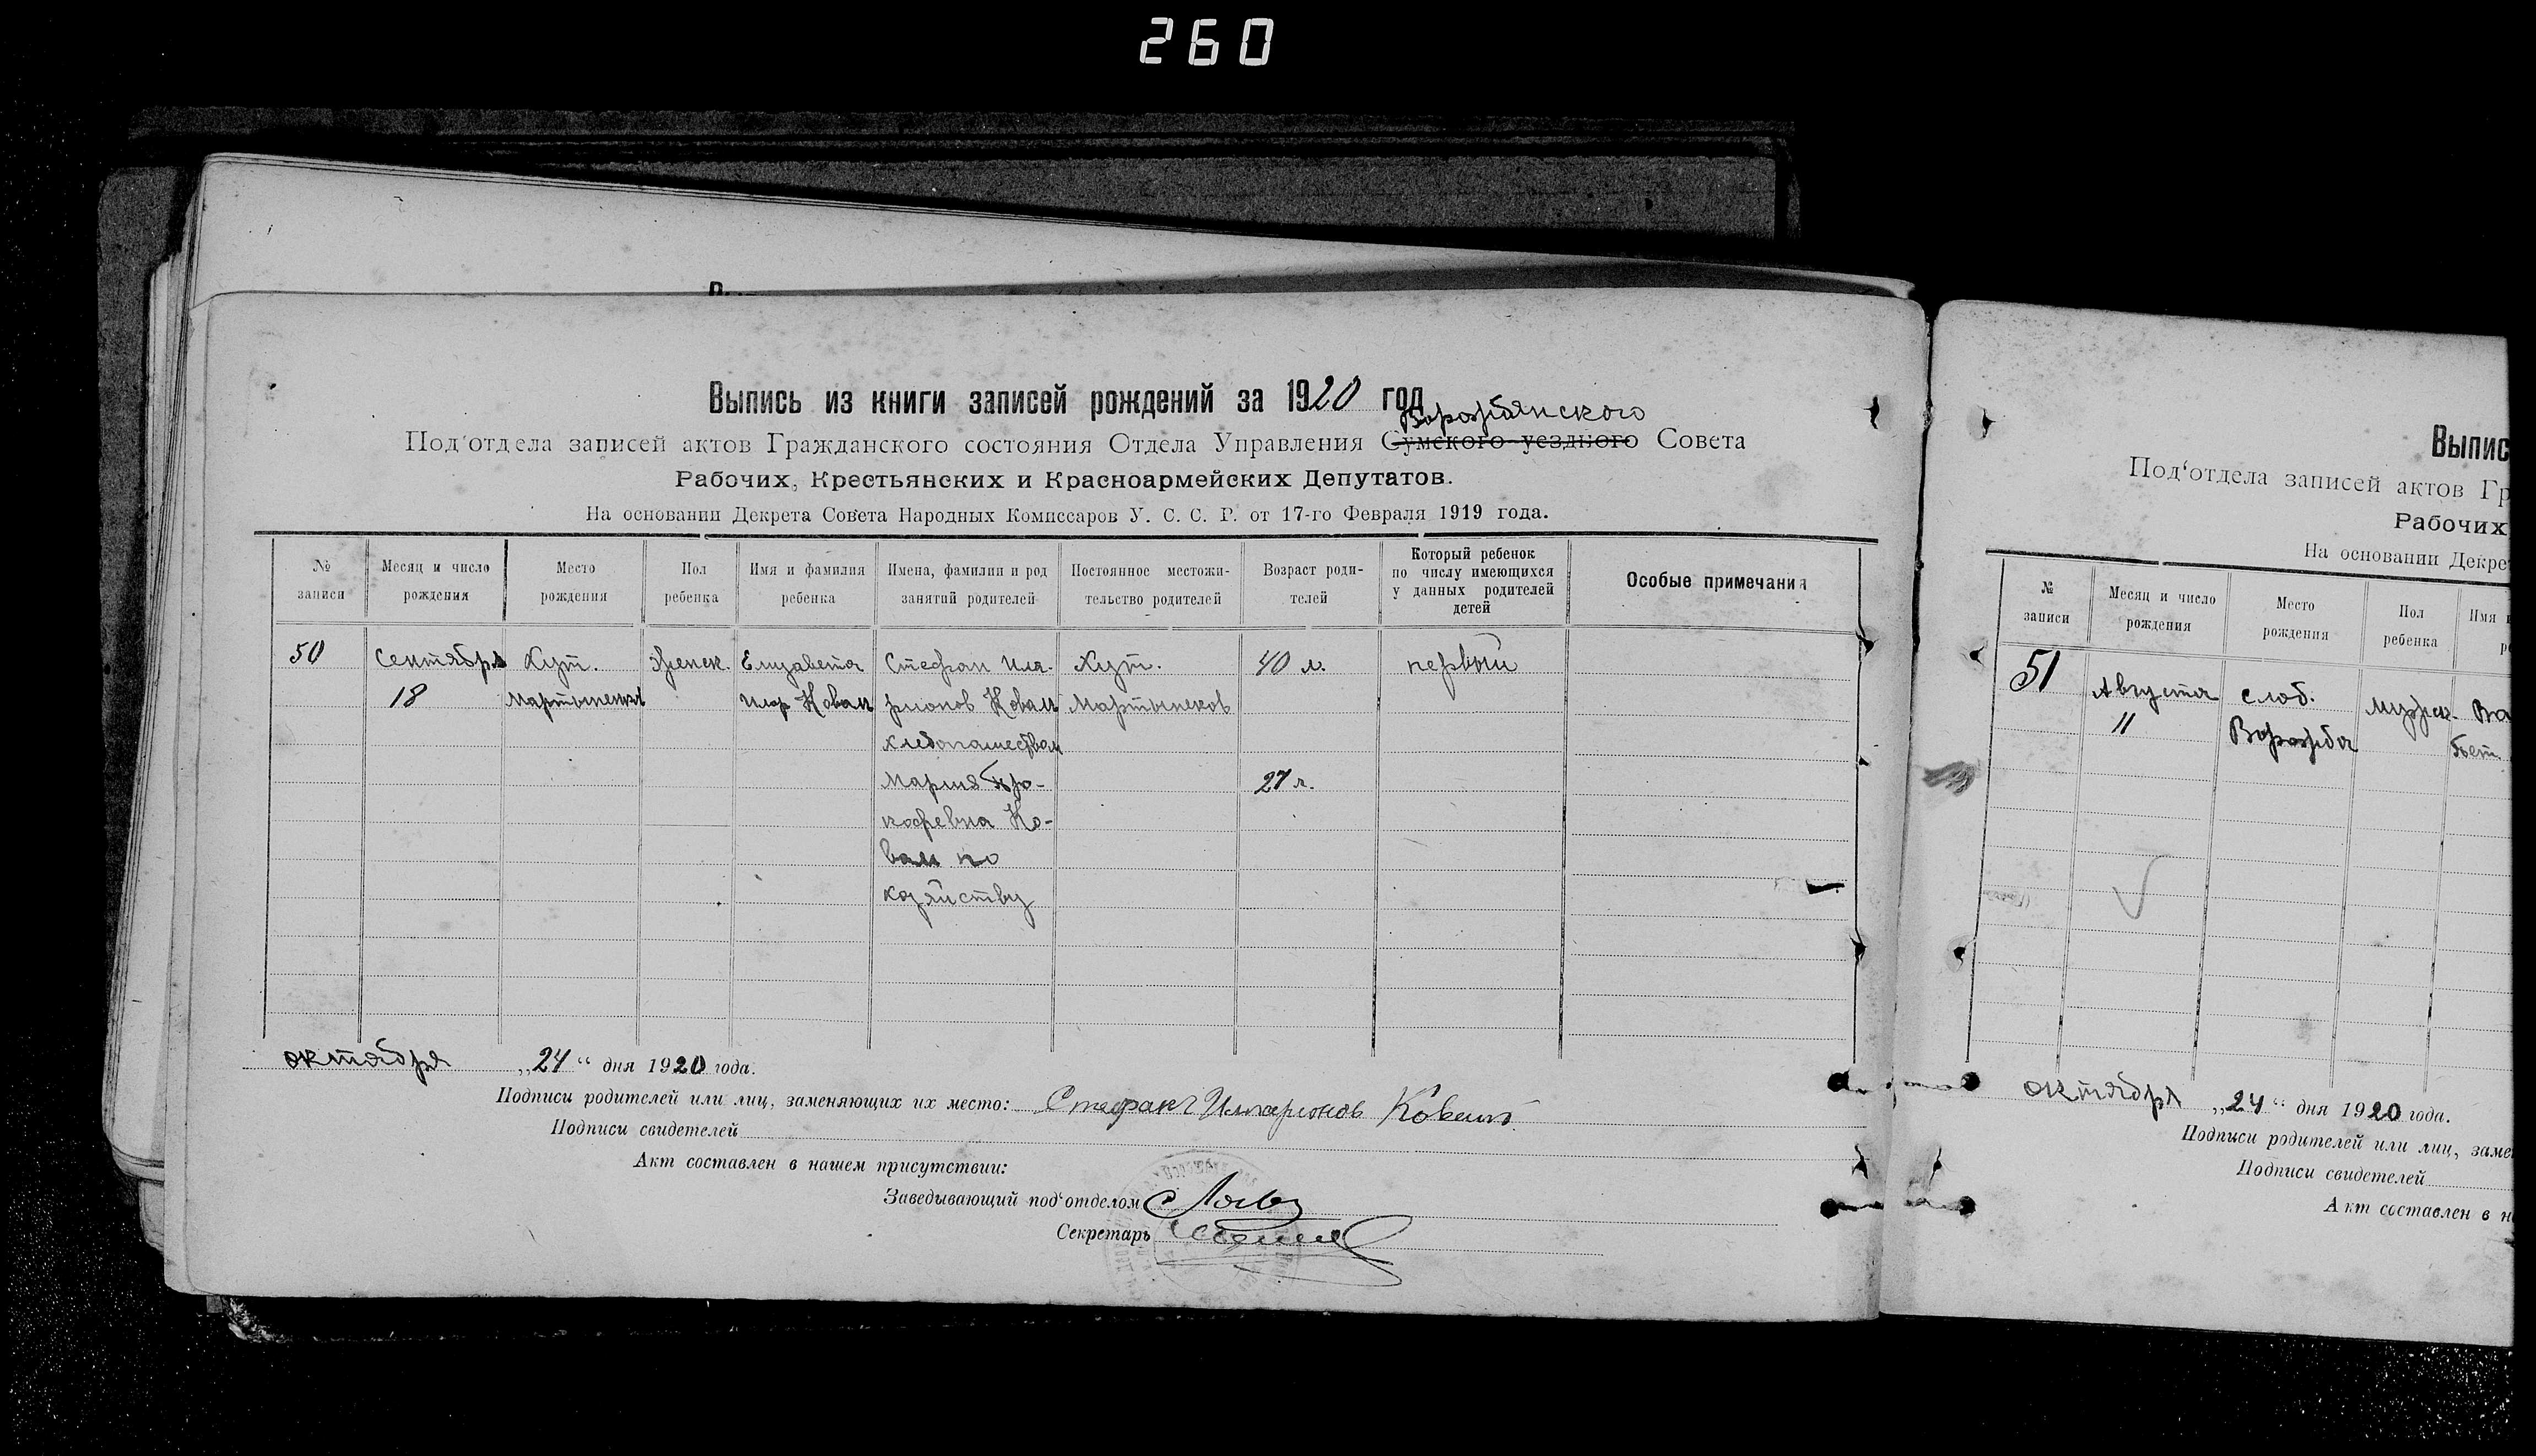 260
Выпись из книги записей рождений за 1920 год
Ворожбянского
Под'отдела записей актов Гражданского состояния Отдела Управления Сумского уездного Совета
Рабочих, Крестьянских и Красноармейских Депутатов.
На основании Декрета Совета Народных Комиссаров У. С. С. Р. от 17-го Февраля 1919 года.
№ записи
Месяц и число рождения
Место рождения
Пол ребенка
Имя и фамилия ребенка
Имена, фамилии и род занятий родителей
Постоянное местожительство родителей
Возраст родителей
Который ребенок по числу имеющихся у данных родителей детей
Особые примечания
50
Сентября
18
Хут.
женск.
Елизавета
Коваль
Стефан Ила-
рионов Коваль
хлебопашеством
Мария Про-
кофевна Ко-
валь по
хозяйству
Хут.
Мартынеков
40 л.
27 л.
первый
октября „24“ дня 1920 года.
Подписи родителей или лиц, заменяющих их место: Стефан Иларионов Коваль
Подписи свидетелей
Акт составлен в нашем присутствии:
Заведывающий под'отделом
Секретарь
Выпис
Под'отдела записей актов Гр
Рабочих
На основании Декре
№ записи
Месяц и число рождения
Место рождения
Пол ребенка
Имя
51
Августа
11
слоб.
Ворожба
мужск.
Ва
октября „24“ дня 1920 года.
Подписи родителей или лиц, заме
Подписи свидетелей
Акт составлен в н